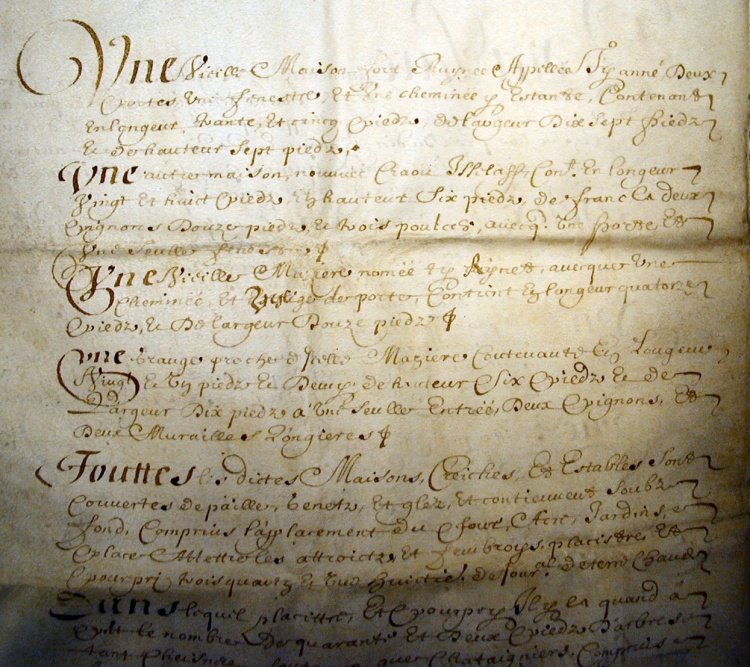 Une Vieille Maison fois Ruynee Appellée Ty anné, Deux
Portes, Une fenestre, Et Une cheminée y Estante, Contenant
En longeur, trante, Et cinq piedz, de largeur Dix sept Piedz
Et de hauteur sept piedz,
Une autre maison, nommée Issellaff, Cont. En longeur
Vingt et huict piedz, hauteur Six piedz, de franc la deux
pignons Douze piedz, Et trois poulces, avecq Une Porte, Et
Une seulle fenestre
Une Vieille Maziere nomée ty avecques Une
cheminée, Et de porte, Contient En longeur quatorze
piedz, Et De largeur Douze piedz
Une Grange proche d'Icelle Maziere Contenante En Longeur
Vingt Et Un piedz Et Demy, de hauteur Six piedz Et de
Largeur Dix piedz à Une seulle Entrée, Deux pignons, Et
Deux Murailles Longieres
Touttes les dictes Maisons, Creiches, Et Estables sont
Couvertes de paille, Genetz, Et glez, Et contiennent soubz
fond, Comprins l'applacement du four, Aire, Jardins, et
place attroictz, Et placistre Et
pourpri trois quartz Et Une de Jour. de terre Chaude
Dans lequel placittre, Et pourpry Il y a quand à
le nombre De quarante Et Deux piedz D'arbres,
tant Chataigniers, Comprins